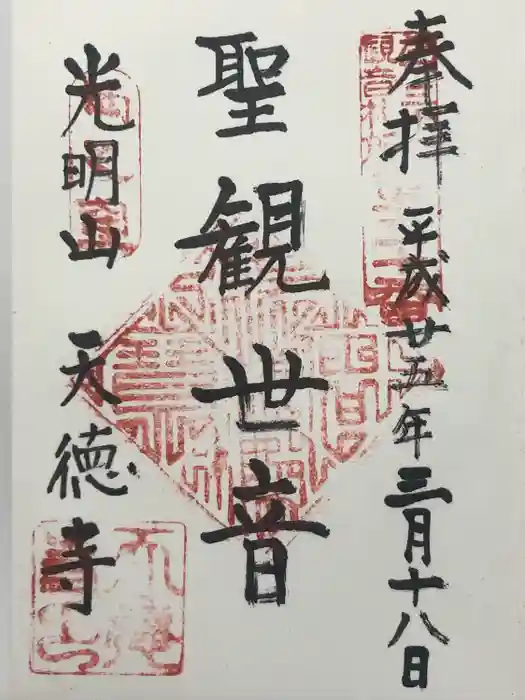 奉拝 平成廿五年三月十八日
聖観世音
光明山 天徳寺